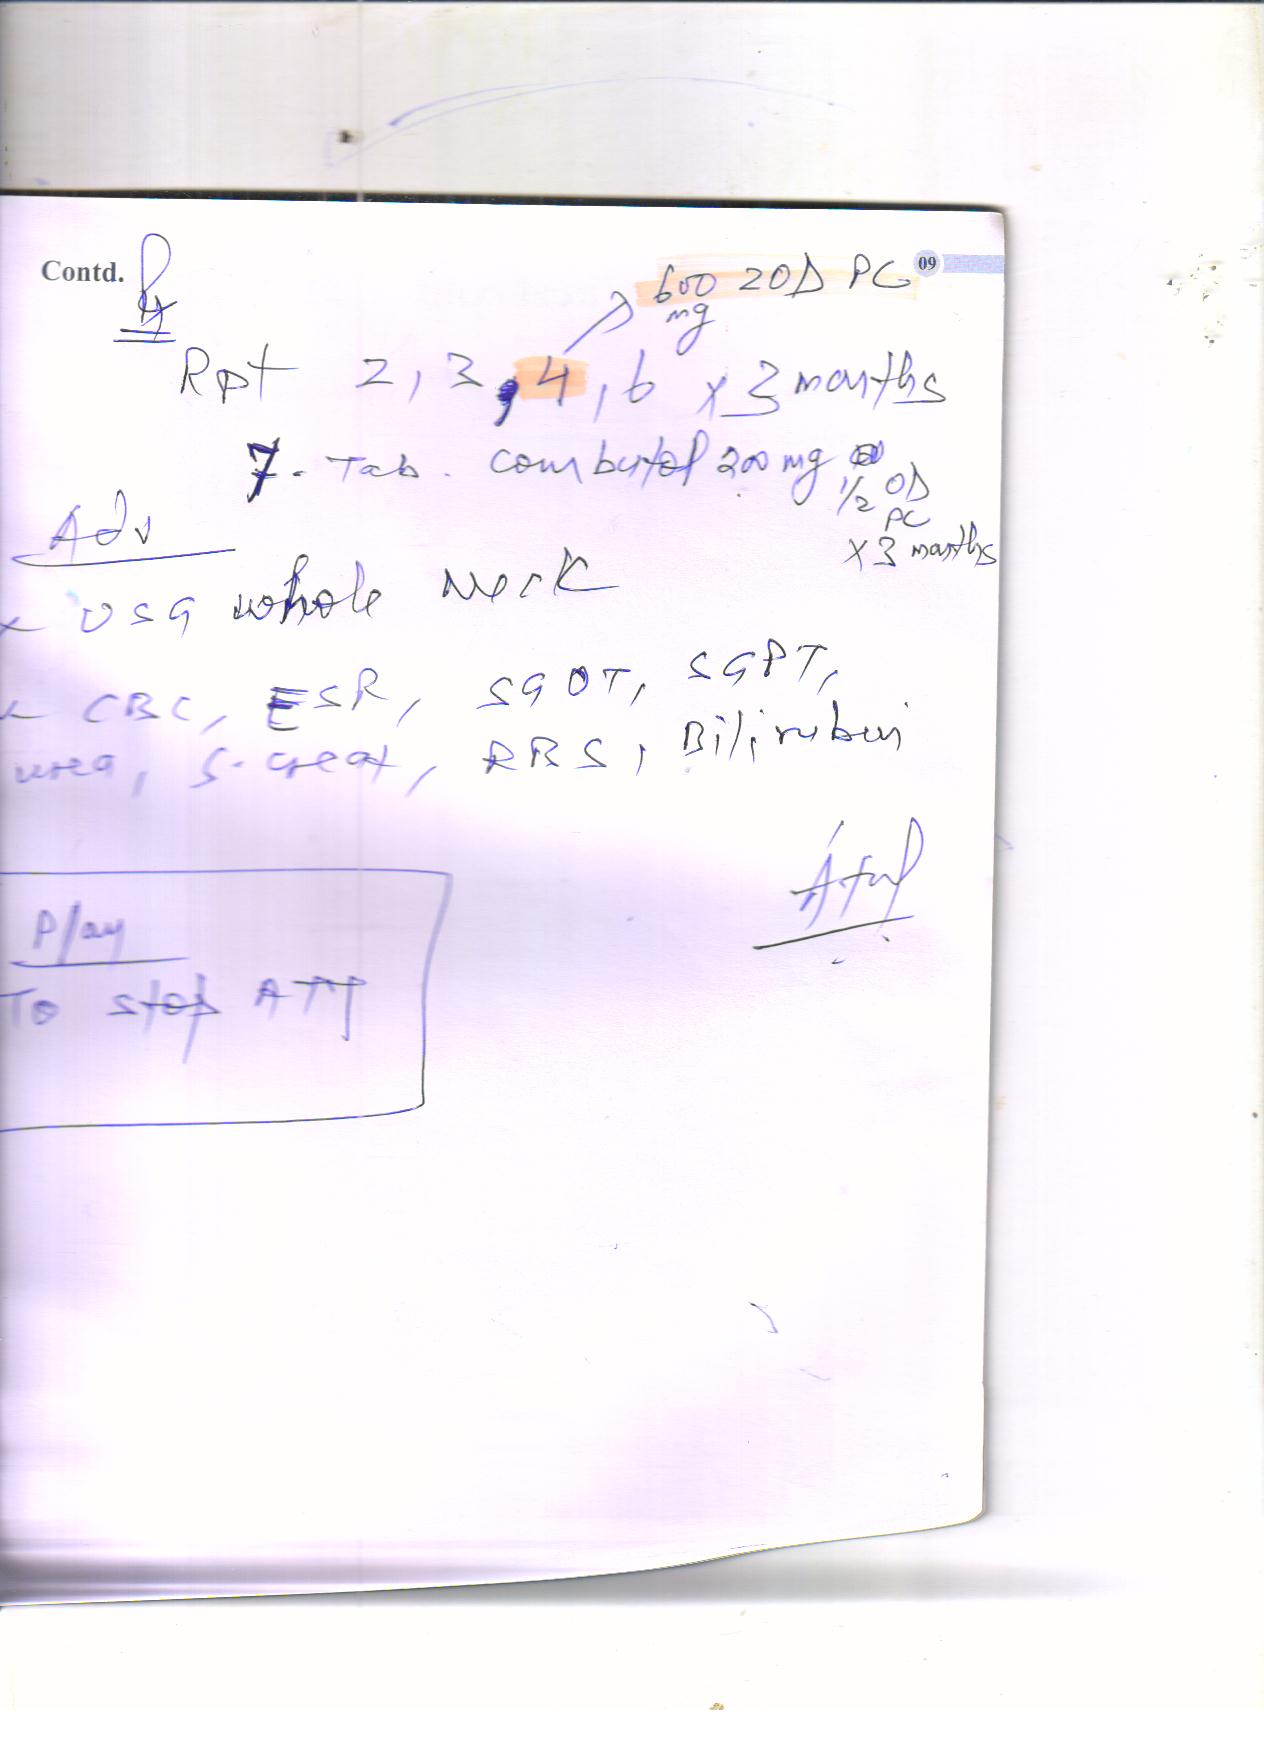 Contd. Rx
600 mg 2 OD PC 09
Rpt 2, 3, 4, 6 x 3 months
7. Tab. Combutol 200 mg
1/2 OD
PC
x 3 months
Adv
USG whole Neck
CBC, ESR, SGOT, SGPT,
urea, S. creat, RBS, Bilirubin
Plan
To stop ATT